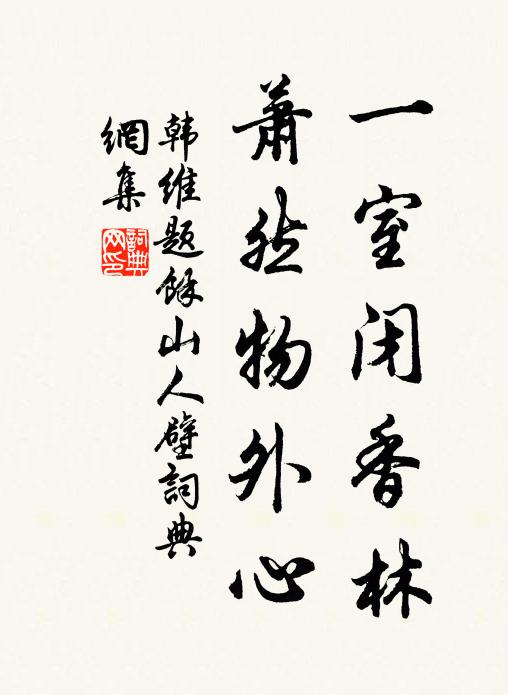 一室闭香林
萧然物外心
韩维题馀山人壁词典
網集
詞典
网印